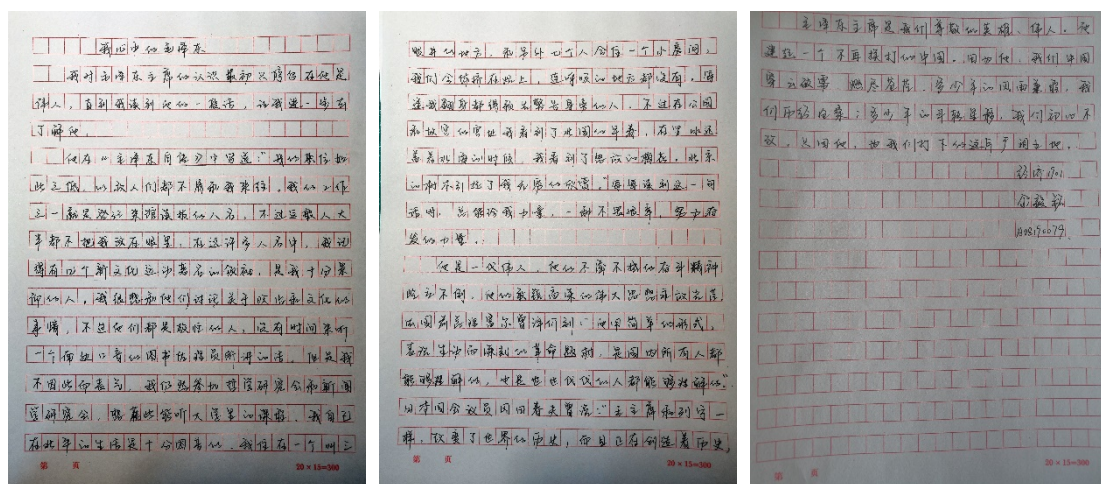 我心中的毛泽东
我对毛泽东主席的认识最初只停留在他是
伟人，直到我读到他的一段话，让我进一步有
了解他。
他在《毛泽东自传》中写道："我的职位如
此之低，以致人们都不屑和我来往。我的工作
之一就是登记来馆读报的人名，不过这般人大
半都不把我放在眼里。在这许多人名中，我记
得有几个新文化运动著名的领袖，是我十分景
仰的人。我很想和他们讨论关于政治和文化的
事情，不过他们都是极忙的人，没有时间来听
一个南边口音的图书馆佐员所讲的话。但是我
不因此而丧气，我仍然参加哲学研究会和新闻
学研究会，想藉此能听大学里的课程。我自己
在北平的生活是十分困苦的。我住在一个叫三
眼井的地方，和另外七个人合住一个小房间，
我们全体挤在炕上，连呼吸的地方都没有。每
逢我翻身都得预先警告身旁的人。不过在公园
和故宫的宫址我看到了北国的早春，在坚冰还
盖着北海的时候，我看到了怒放的梅花。北京
的树木引起了我无穷的欣赏。"每每读到这一句
话时，总能给我力量，一种不畏艰辛，努力奋
发的力量。
他是一代伟人，他的不屈不挠的奋斗精神
屹立不倒，他的
法国前总统
易被
能够理解的，也是世世代代的人都能够理解的。"
日本国会议员冈田春夫曾说："毛主席和列宁一
样，改变了世界的历史，而且正在创造着历史。
毛泽东主席是我们尊敬的英雄、伟人。他
建起一个不再挨打的中国。因为他，我们中国
多少年的风雨兼程，我
们历经沧桑；多少年的
改，只因他，为我们打下的
经济1901
A08190079
第 页
20×15=300
第 页
20×15=300
第 页
20×15=300